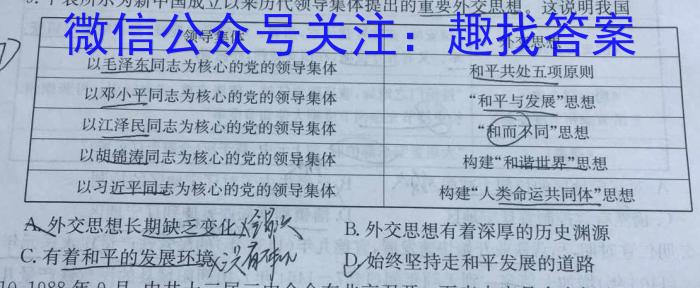 下表所示为新中国成立以来历代领导集体提出的重要外交思想。这说明我国
微信公众号关注：趣找答案
领导集体
以毛泽东同志为核心的党的领导集体 和平共处五项原则
以邓小平同志为核心的党的领导集体 “和平与发展”思想
以江泽民同志为核心的党的领导集体 “和而不同”思想
以胡锦涛同志为核心的党的领导集体 构建“和谐世界”思想
以习近平同志为核心的党的领导集体 构建“人类命运共同体”思想
A. 外交思想长期缺乏变化 B. 外交思想有着深厚的历史渊源
C. 有着和平的发展环境 D. 始终坚持走和平发展的道路